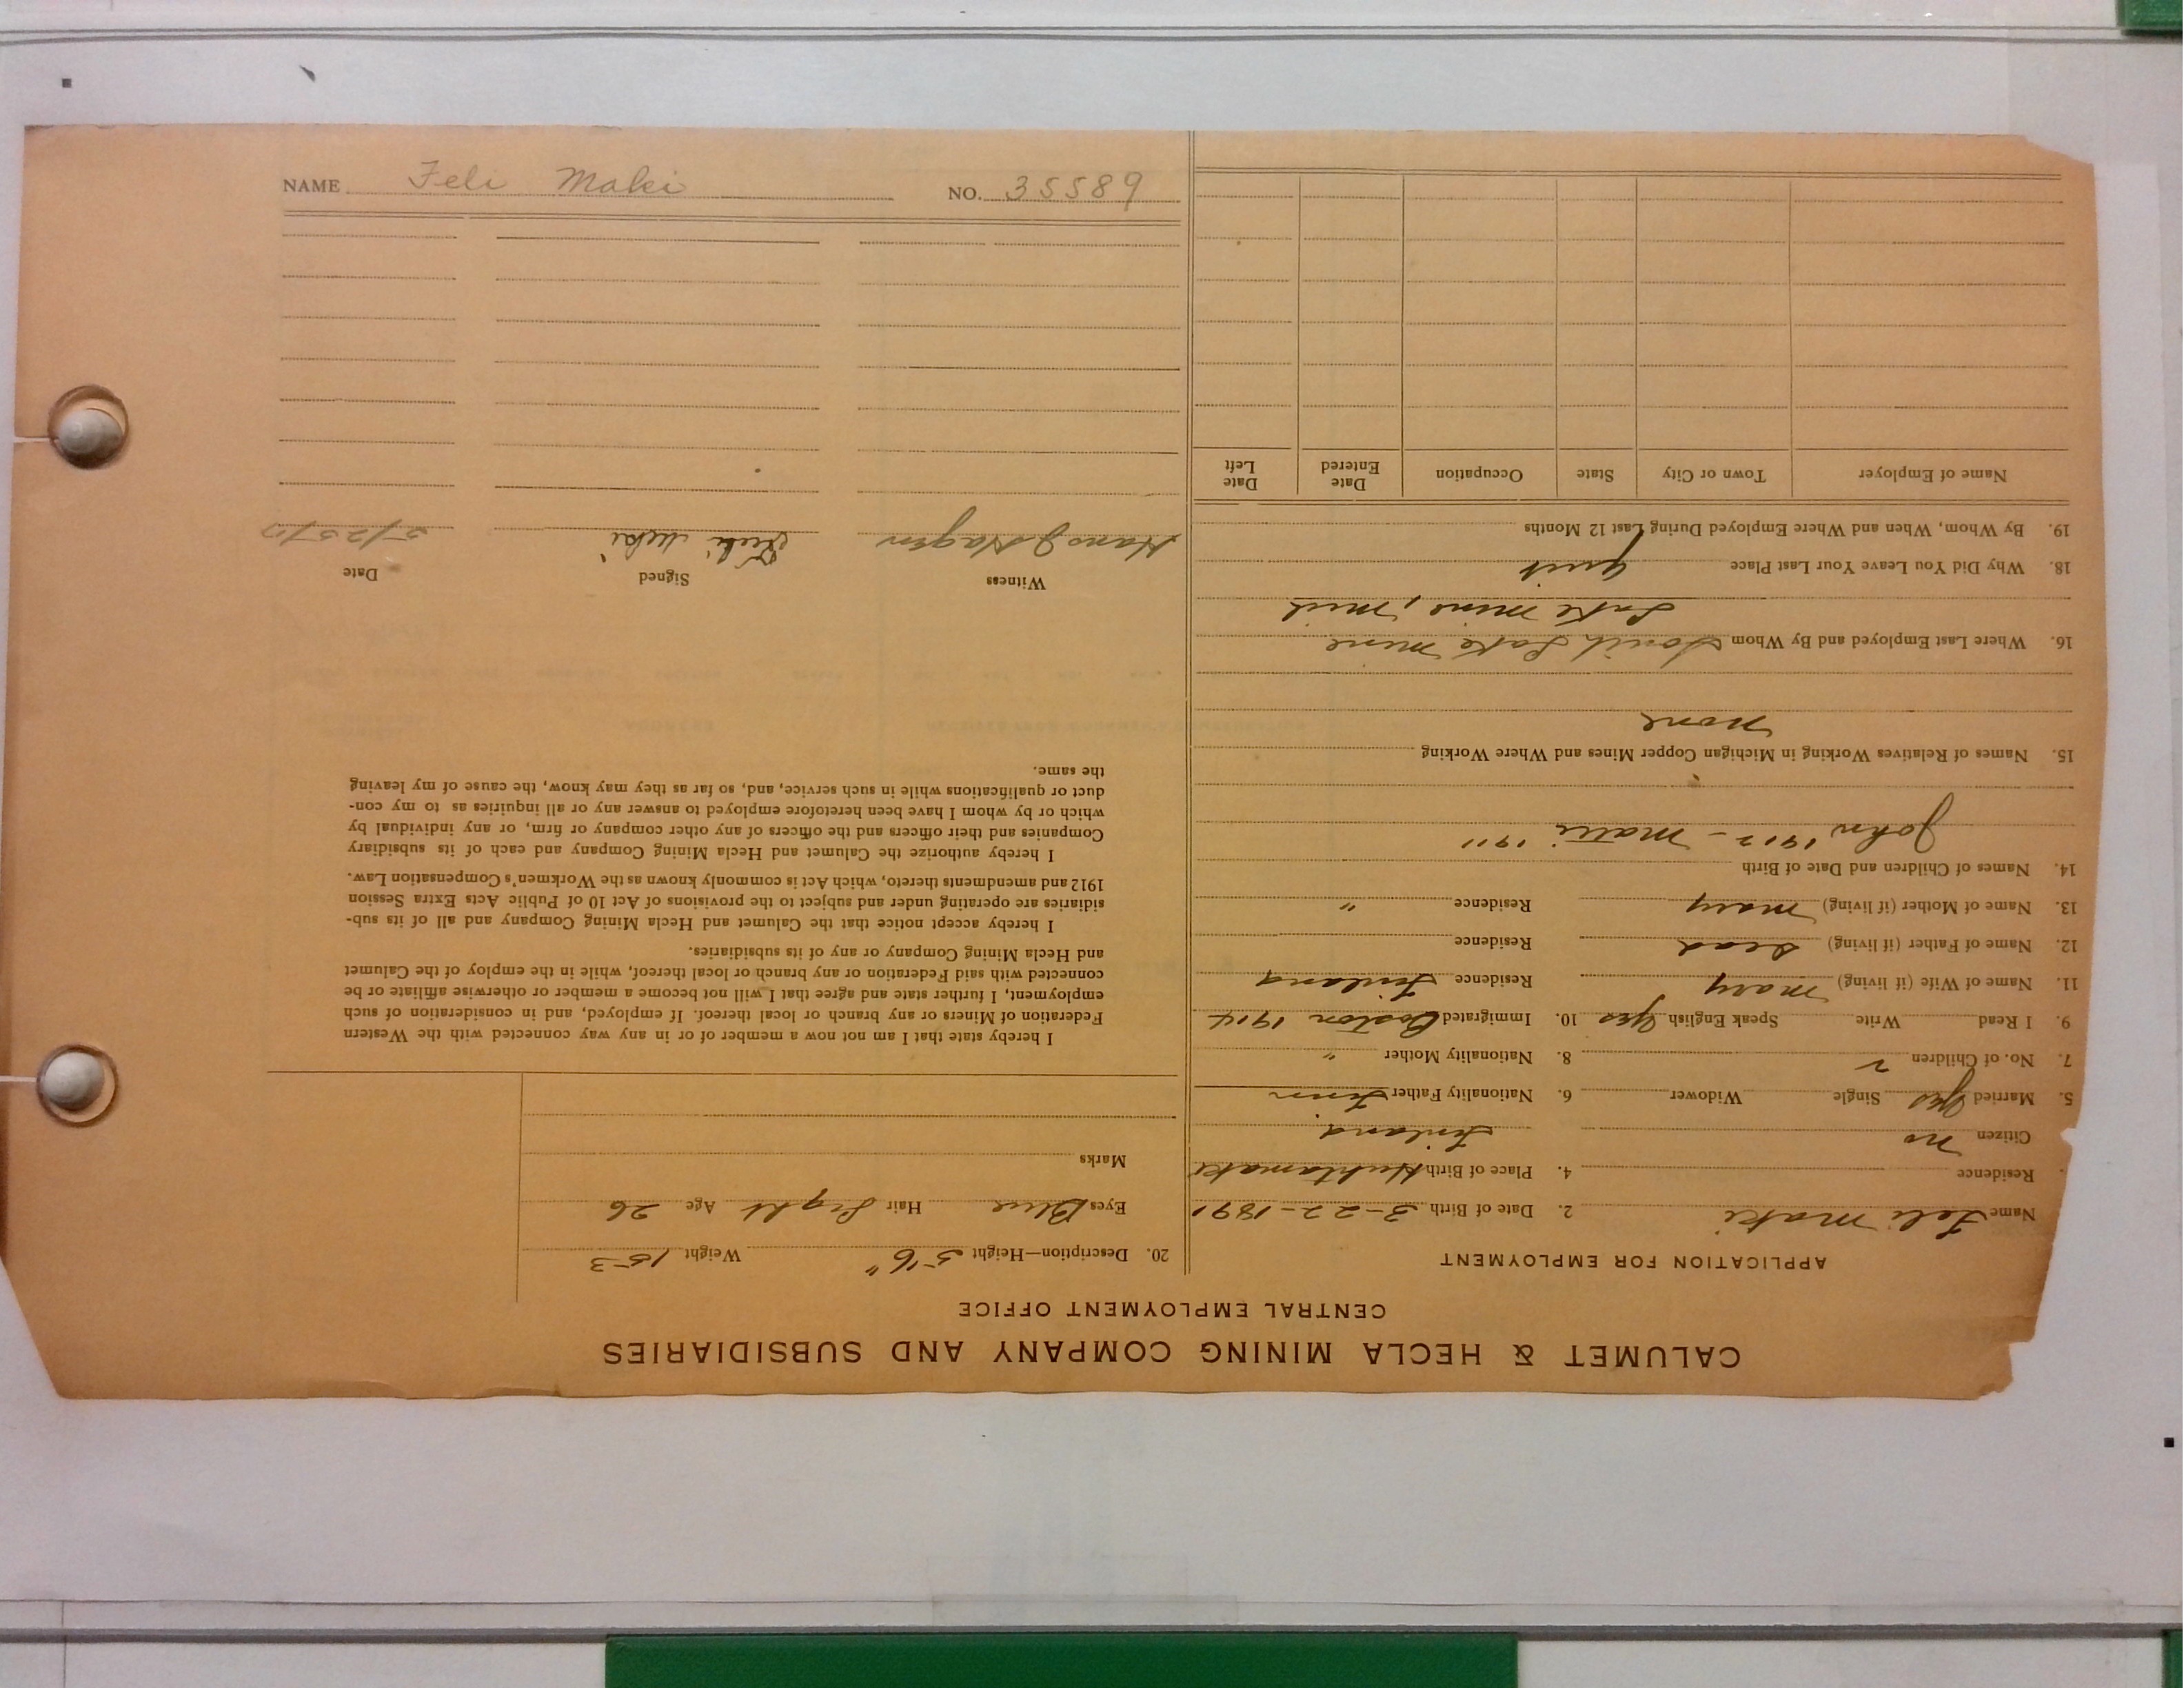 CALUMET & HECLA MINING COMPANY AND SUBSIDIARIES
CENTRAL EMPLOYMENT OFFICE
APPLICATION FOR EMPLOYMENT
Name Feli Maki 2. Date of Birth 3-22-1891
Residence 4. Place of Birth Huhtamaki
Citizen no Finland
5. Married Yes Single Widower 6. Nationality Father Finn
7. No. of Children 2 8. Nationality Mother "
9. I Read Write Speak English Yes 10. Immigrated Boston 1914
11. Name of Wife (if living) Mary Residence Finland
12. Name of Father (if living) Dead Residence
13. Name of Mother (if living) Mary Residence "
14. Names of Children and Date of Birth
John 1912 - Matti 1911
15. Names of Relatives Working in Michigan Copper Mines and Where Working
none
16. Where Last Employed and By Whom South Lake mine
Lake mine, Mich
18. Why Did You Leave Your Last Place quit
19. By Whom, When and Where Employed During Last 12 Months
Name of Employer Town or City State Occupation Date Entered Date Left
20. Description—Height 5'6" Weight 153
Eyes Blue Hair Light Age 26
Marks
I hereby state that I am not now a member of or in any way connected with the Western
Federation of Miners or any branch or local thereof. If employed, and in consideration of such
employment, I further state and agree that I will not become a member or otherwise affiliate or be
connected with said Federation or any branch or local thereof, while in the employ of the Calumet
and Hecla Mining Company or any of its subsidiaries.
I hereby accept notice that the Calumet and Hecla Mining Company and all of its sub-
sidiaries are operating under and subject to the provisions of Act 10 of Public Acts Extra Session
1912 and amendments thereto, which Act is commonly known as the Workmen's Compensation Law.
I hereby authorize the Calumet and Hecla Mining Company and each of its subsidiary
Companies and their officers and the officers of any other company or firm, or any individual by
which or by whom I have been heretofore employed to answer any or all inquiries as to my con-
duct or qualifications while in such service, and, so far as they may know, the cause of my leaving
the same.
Witness Signed Date
Hans J Hagen
NAME Feli Maki NO. 35589